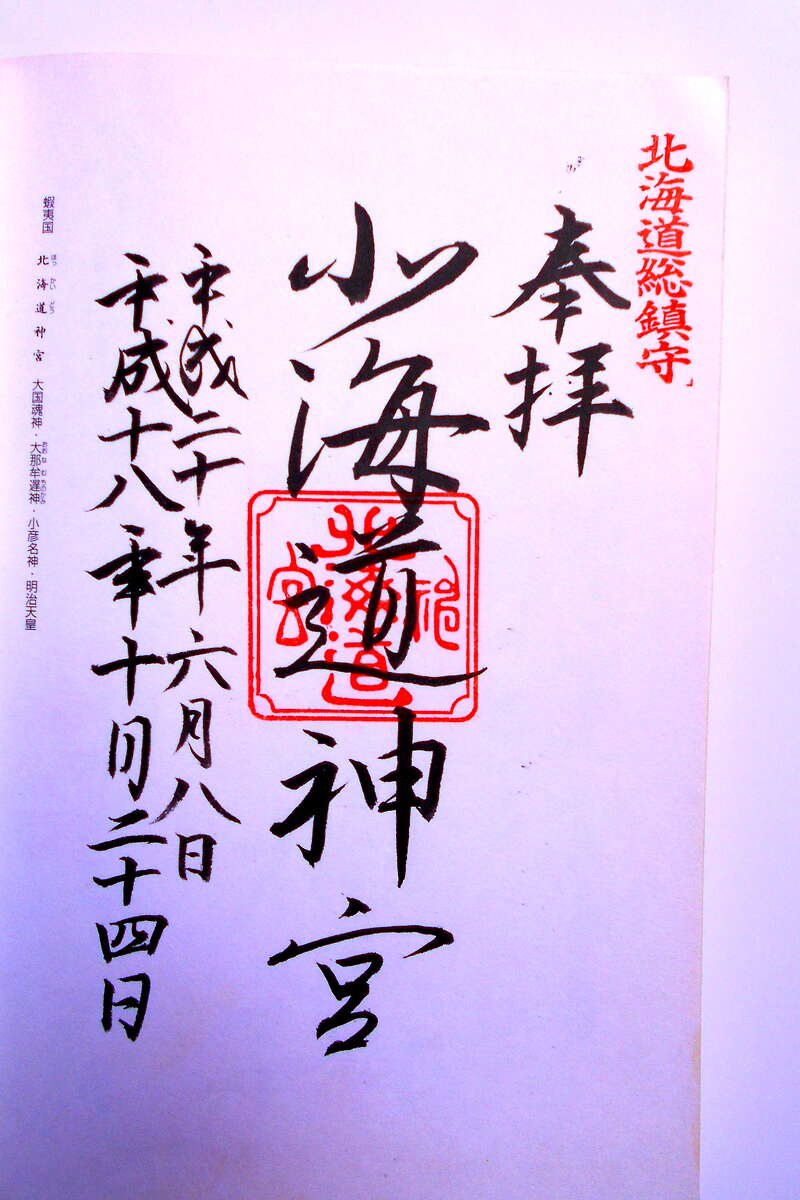 北海道総鎮守
奉拝
北海道神宮
北海道神宮
平成二十年六月八日
平成十八年十月二十四日
蝦夷国 北海道神宮 大国魂神・大那牟遅神・小彦名神・明治天皇